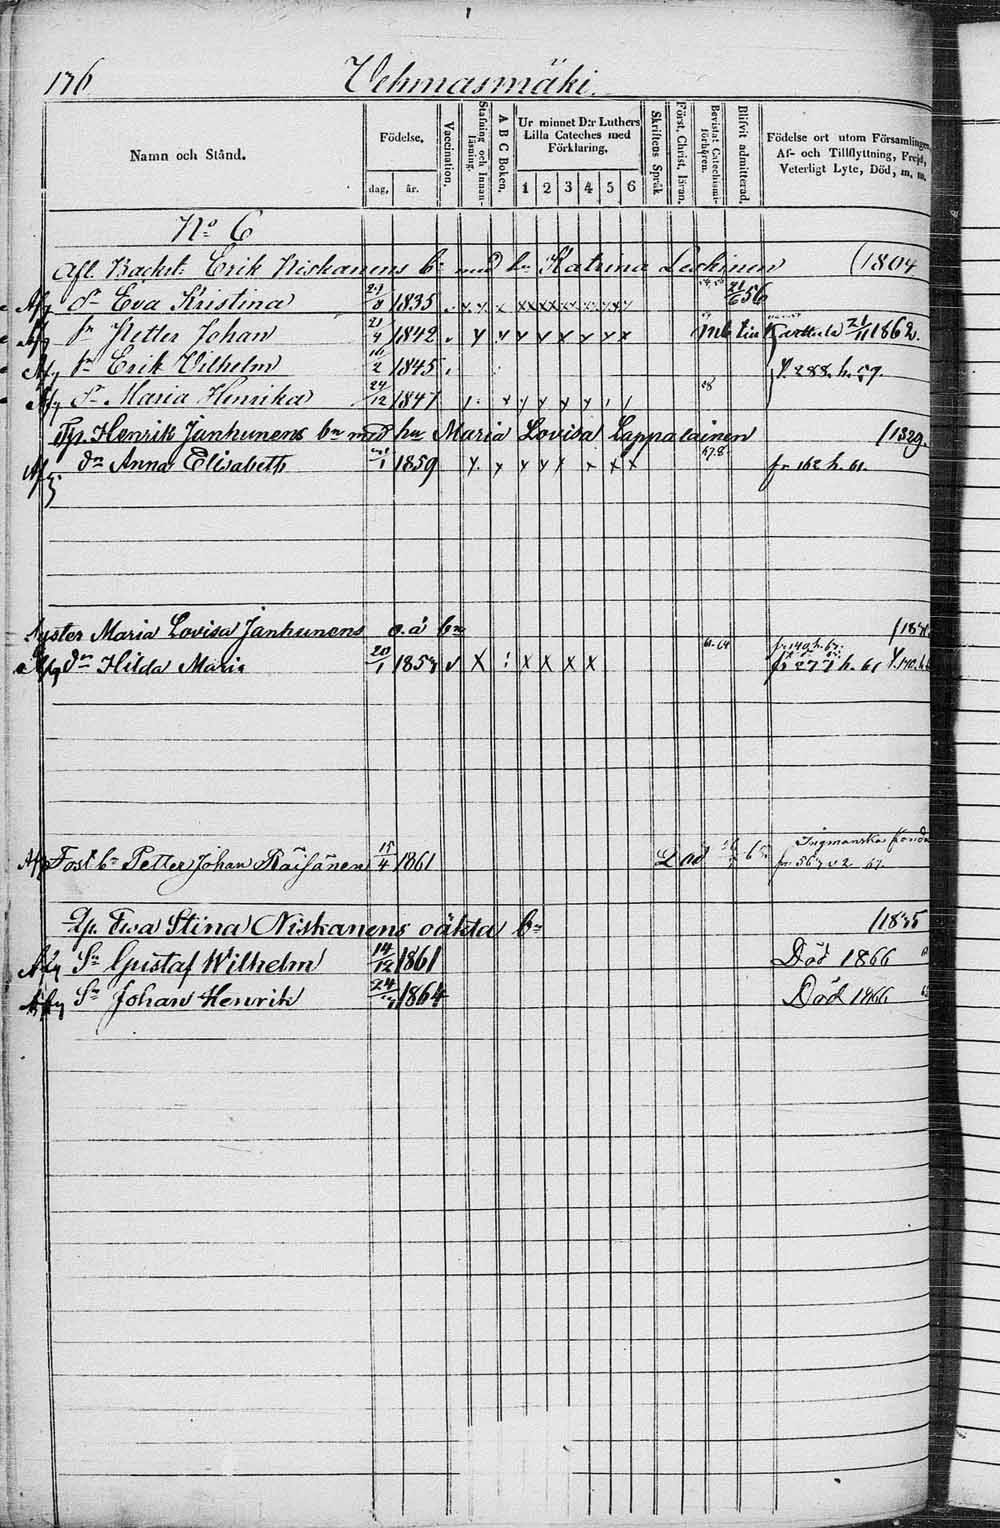 176 Vehmasmäki.
Namn och Stånd. Födelse. dag. år. Vaccination. Stafning och Innanläsning. A B C Boken. Ur minnet D:r Luthers Lilla Cateches med Förklaring. 1 2 3 4 5 6 Skriftens Språk Först. Christ. läran. Bevistat Catechismiförhören. Blifvit admitterad. Födelse ort utom Församlingen, Af- och Tillflyttning, Frejd, Veterligt Lyte, Död, m. m.
No 6
Afl. Backst: Erik Niskanens bn med hn Katrina Leskinen (1804
dr Eva Kristina 8 1835 x x x x x x x x x 21/6 56
sn Petter Johan 21/4 1842 x x x x x x x x Karttula 21/11 1862.
sn Erik Vilhelm 16/2 1845 Y. 288. h. 59.
dr Maria Henrika 24/12 1847 58
Henrik Janhunens bn med hn Maria Lovisa Lappalainen /1829.
dr Anna Elisabeth 1 1859 x x x x x x x x 67.8. fr 162 h. 61.
Syster Maria Lovisa Janhunens o. ä bn
dr Hilda Maria 20/1 185 v X : X X X X 61. 64 fr 140 h. 67. fr 277 h. 61
Fost bn Petter Johan Räisänen 15/4 1861 L ad Ingmanska
Ewa Stina Niskanens oäkta bn /1835
Sn Gustaf Wilhelm 14/12 1861 Död 1866
Sn Johan Henrik 24 1864 Död 1866